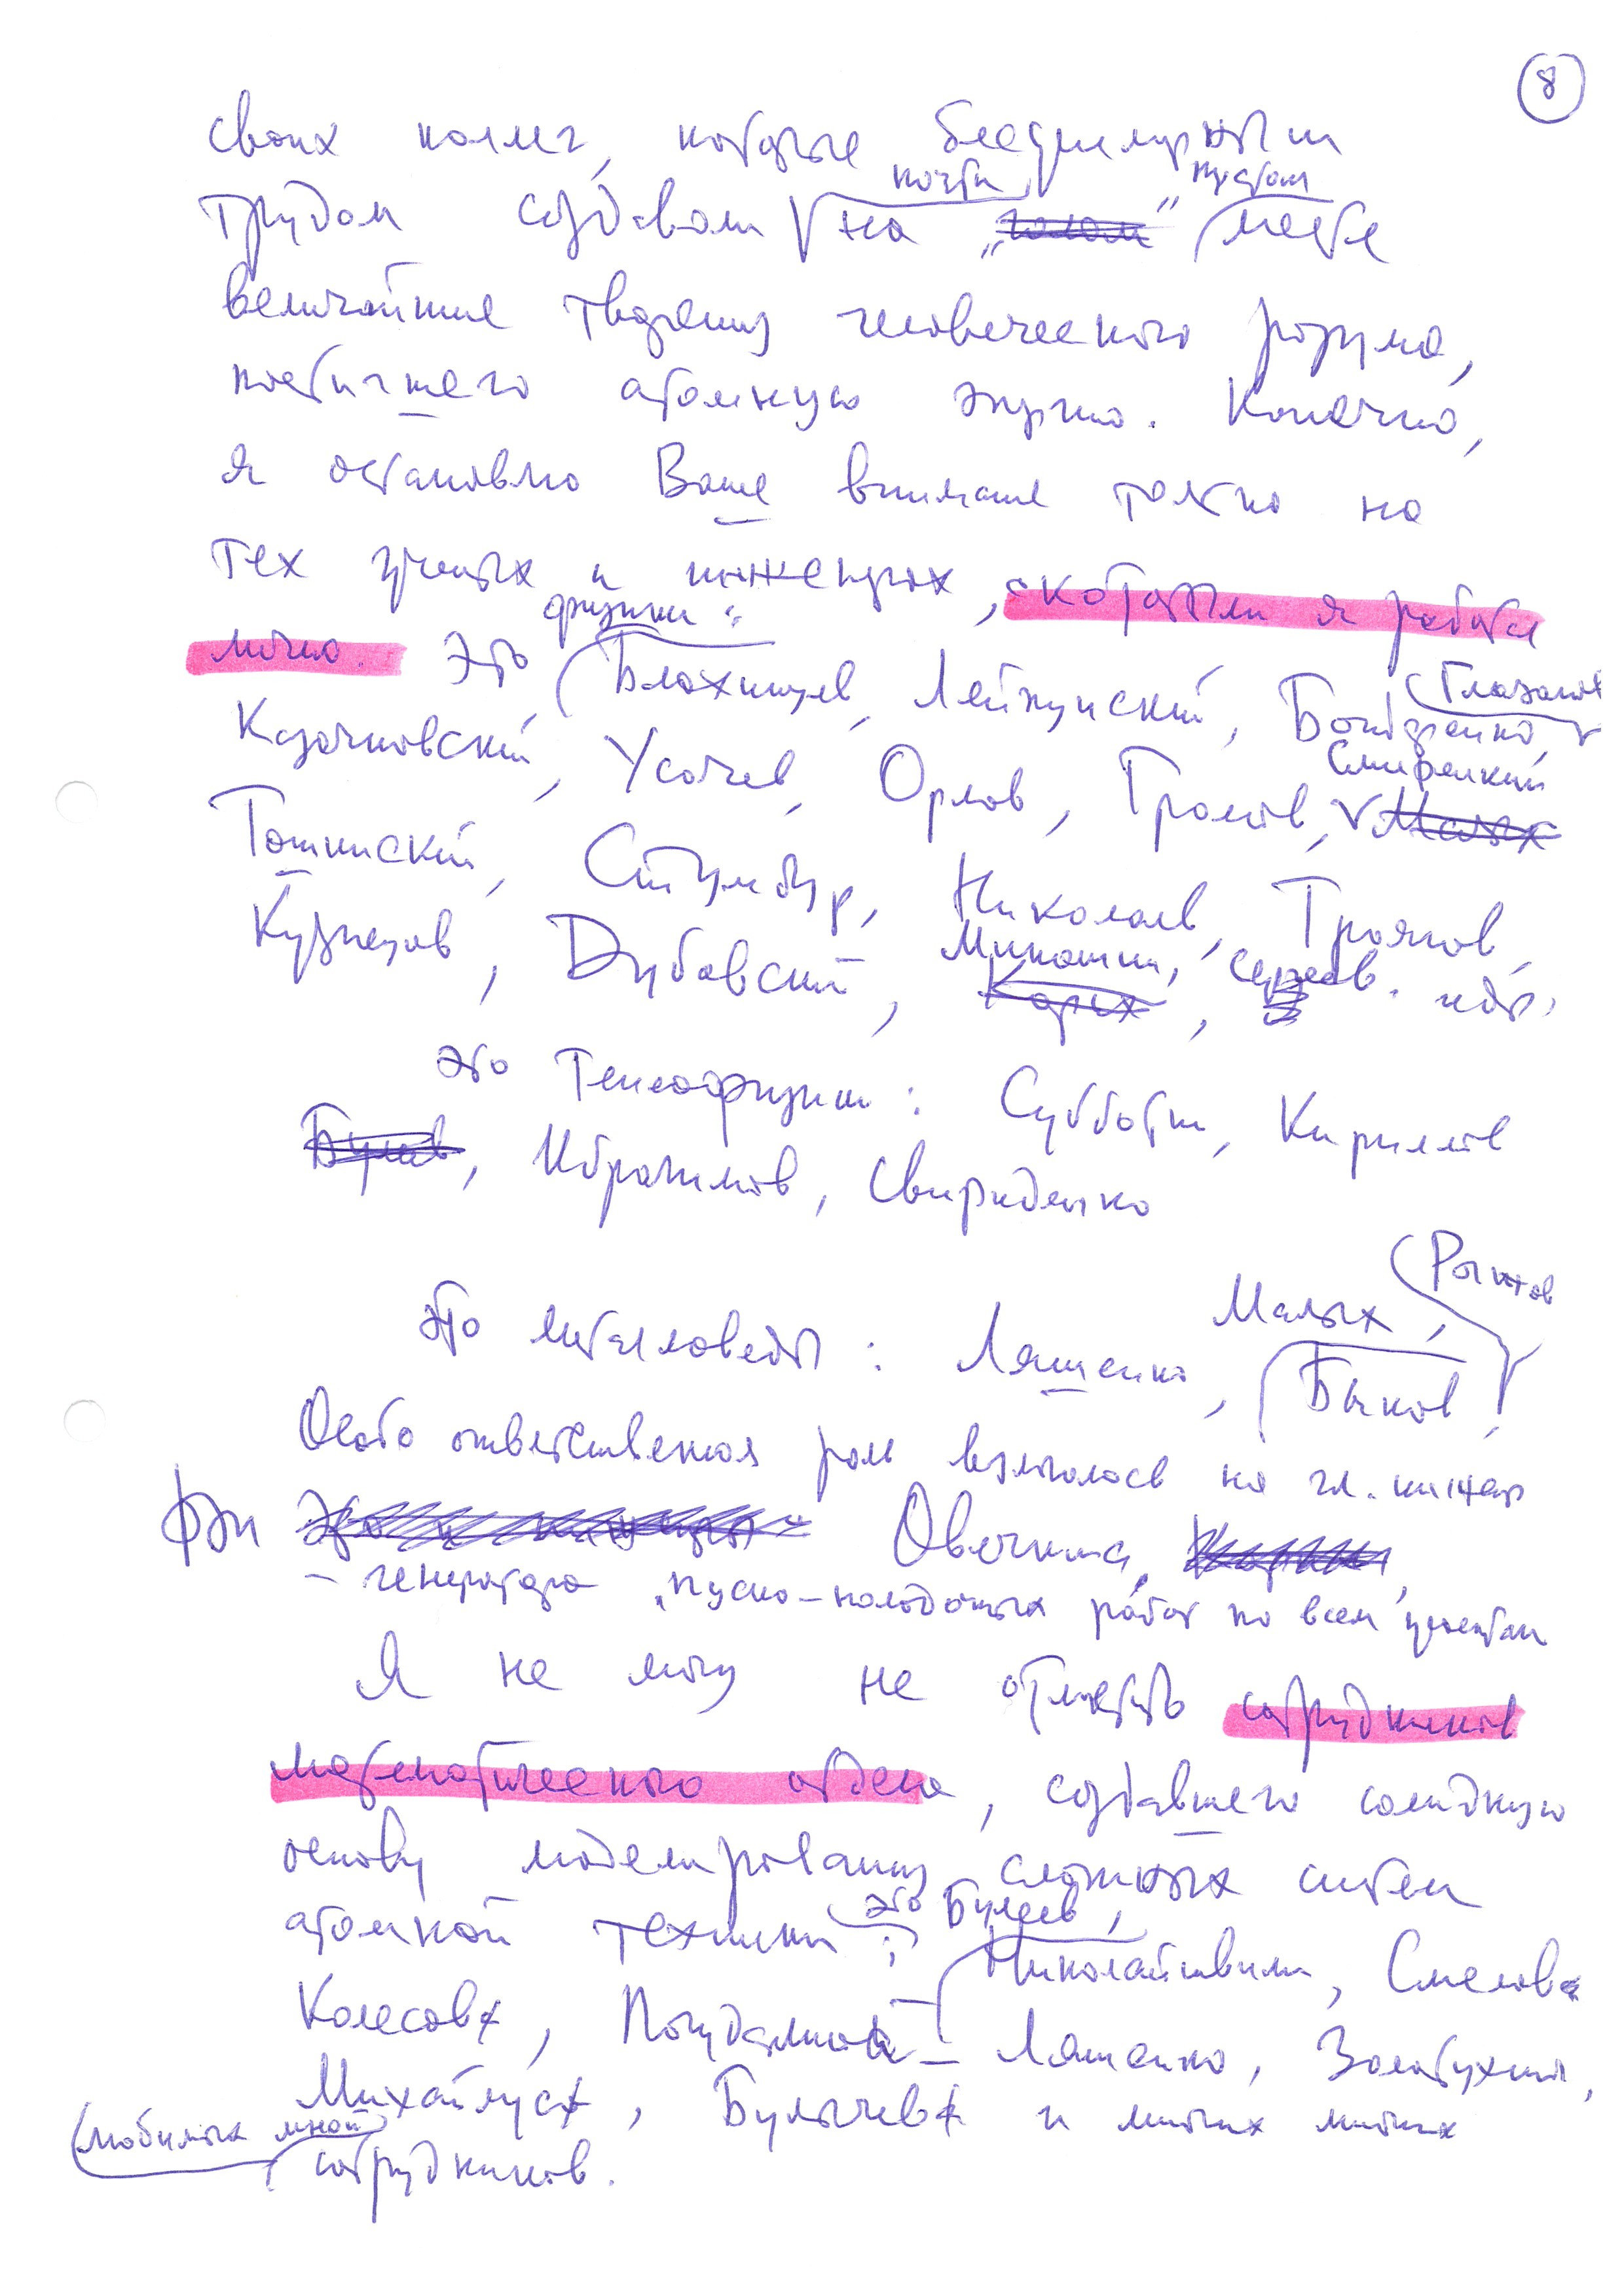 8
своих коллег, которые беспримерным
трудом создавали почти на „голом" пустом месте
величайшие творения человеческого разума,
постигшего атомную энергию. Конечно,
я остановлю Ваше внимание только на
тех ученых и инженерах, с которыми я работал
лично. Это физики: Блохинцев, Лейпунский, Бондаренко, Глазков
Казачковский, Усачев, Орлов, Громов, Смиренкин Малых
Тошинский, Стумбур, Николаев, Трояков,
Кузнецов, Дубовский, Минашин, Корех, Сергеев. и др.
Это Теплофизики: Субботин, Кириллов
Булеев, Ибрагимов, Свириденко
Это металловеды: Ляшенко, Малых, Быков, Рыжков
Особо ответственная роль возлагалась на гл. инженер
ФЭИ Овечкина,
– генератора пуско-наладочных работ по всем участкам
Я не могу не отметить сотрудников
математического отдела, создавшего солидную
основу моделирования сложных систем
атомной техники: это Булеев,
Николайшвили, Смелова
Колесов, Погудалина – Ляшенко, Золотухин,
Михайлус, Булычев и многих многих
любимых мной сотрудников.